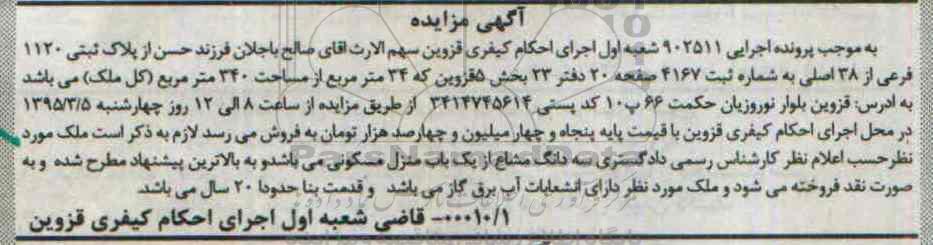 آگهی مزایده
به موجب پرونده اجرایی ۹۰۲۵۱۱ شعبه اول اجرای احکام کیفری قزوین سهم الارث اقای صالح باجلان فرزند حسن از پلاک ثبتی ۱۱۲۰
فرعی از ۳۸ اصلی به شماره ثبت ۴۱۶۷ صفحه ۲۰ دفتر ۲۳ بخش ۵قزوین که ۳۴ متر مربع از مساحت ۳۴۰ متر مربع (کل ملک) می باشد
به ادرس: قزوین بلوار نوروزیان حکمت ۶۶ پ۱۰ کد پستی ۳۴۱۴۷۴۵۶۱۴ از طریق مزایده از ساعت ۸ الی ۱۲ روز چهارشنبه ۱۳۹۵/۳/۵
در محل اجرای احکام کیفری قزوین با قیمت پایه پنجاه و چهار میلیون و چهارصد هزار تومان به فروش می رسد لازم به ذکر است ملک مورد
نظرحسب اعلام نظر کارشناس رسمی دادگستری سه دانگ مشاع از یک باب منزل مسکونی می باشدو به بالاترین پیشنهاد مطرح شده و به
صورت نقد فروخته می شود و ملک مورد نظر دارای انشعابات آب برق گاز می باشد و قدمت بنا حدودا ۲۰ سال می باشد.
۰۰۰۱۰/۱- قاضی شعبه اول اجرای احکام کیفری قزوین